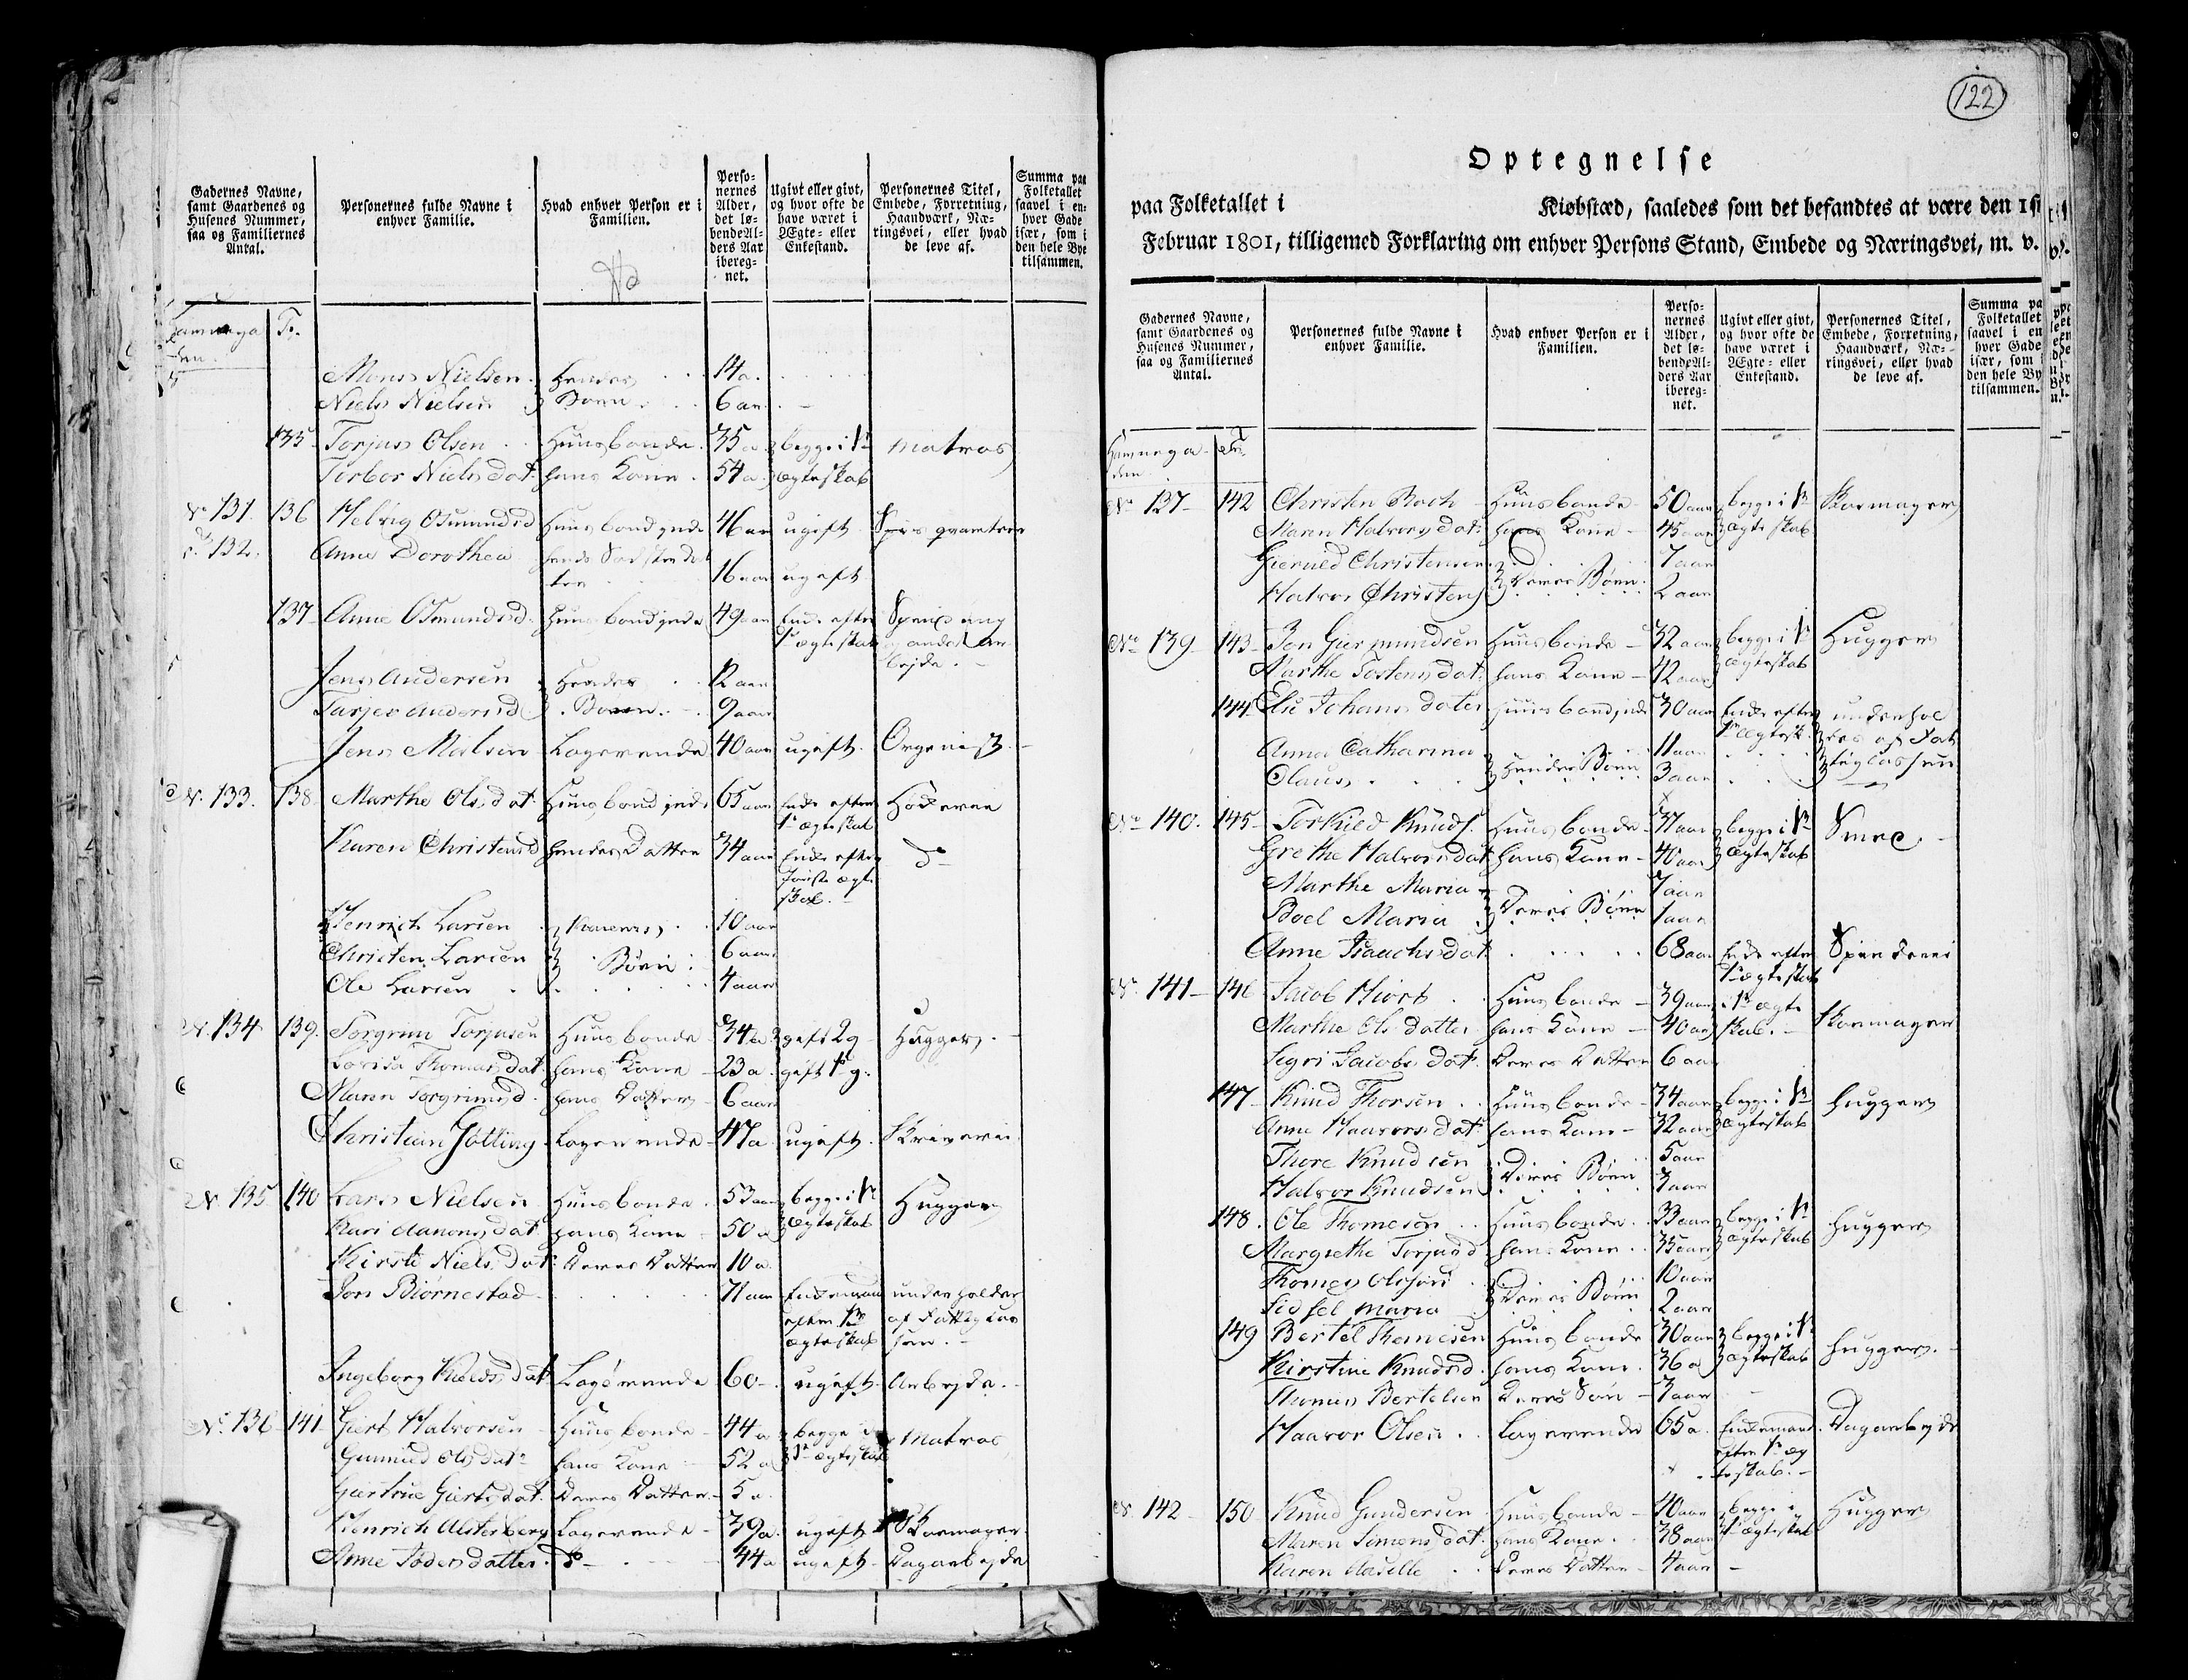 Gadernes Navne, samt Gaardenes og Husenes Nummer, saa og Familiernes Antal.
Personernes fulde Navne i enhver Familie.
Hvad enhver Person er i Familien.
Personernes Alder, det løbende Alders Aar iberegnet.
Ugivt eller givt, og hvor ofte de have været i Ægte- eller Enkestand.
Personernes Titel, Embede, Forretning, Haandværk, Næringsvei, eller hvad de leve af.
Summa paa Folketallet saavel i enhver Gade især, som i den hele Bye tilsammen.
Mons Nielsen Hendes 14 a.
Niels Nielsen Børn 6 aar
135 Torjus Olsen Huusbonde 35 a begge i 1te Matros
Torbor Niels dat. hans Kone 54 a ægteskab
No 131 136 Helvig Osmundsd Huusbondinde 46 aar ugift
132. Anne Dorothea 16 aar ugift
137 Anne Osmundsd. Huusbondinde 49 aar Enke efter
1te ægteskab
Jens Andersen Hendes 12 aar
Tarjer Andersd Børn 9 aar
Jens Nielsen Logerende 40 aar ugift Organist
No 133. 138. Marthe Ols dat. Huusbondinde 65 aar Enke efter Høkerie
1te ægteskab
Karen Christensd hendes Datter 34 aar Enke efter do
første ægte
skab
Henrich Larsen Karens 10 aar
Christen Larsen Børn 6 aar
Ole Larsen 4 aar
No 134 139. Torgrim Torjusen Huusbonde 34 a gift 2 g Hugger
Lovisa Thomas dat. hans Kone 23 a. gift 1te g.
Maren Torgrimsd. hans Datter 6 aar
Christian Götting Logerende 47 a ugift Skriverie
No 135 140 Lars Nielsen Huusbonde 53 aar begge i 1te Hugger
Kari Aanons dat. hans Kone 50 a ægteskab
Kirsti Niels dat. Deres Datter 10 a.
Jon Biørnestad 71 aar Enkemand underholdes
efter 1te af Fattigcas
ægteskab sen.
Ingeborg Kields dat Logerende 60 ugift Arbejde.
No 136 141 Giert Halvorsen Huusbonde 44 a begge i Matros
Gunnild Ols dat. hans Kone 52 a 1te ægteskab
Giertrue Gierts dat. Deres Datter 5 a.
Henrich Alsterberg Logerende 39 a. ugift Skoemager
Anne Peders datter. do 44 a ugift Dagarbejde
122
Optegnelse
paa Folketallet i Kiøbstæd, saaledes som det befandtes at være den 1ste
Februar 1801, tilligemed Forklaring om enhver Persons Stand, Embede og Næringsvei, m. v.
Gadernes Navne, samt Gaardenes og Husenes Nummer, saa og Familiernes Antal.
Personernes fulde Navne i enhver Familie.
Hvad enhver Person er i Familien.
Personernes Alder, det løbende Alders Aar iberegnet.
Ugivt eller givt, og hvor ofte de have været i Ægte- eller Enkestand.
Personernes Titel, Embede, Forretning, Haandværk, Næringsvei, eller hvad de leve af.
Summa paa Folketallet saavel i enhver Gade især, som i den hele By tilsammen.
No 137 142 Christen Huusbonde 50 aar begge i 1te Skoemager
Maren Halvors dat. hans Kone 45 aar ægteskab
Gierued Christensen 7 aar
Halvor Christens Deres Børn 2 aar
No 139 143 Jon Giermundsen Huusbonde 32 aar begge i 1te Hugger
Marthe Tostens dat. hans Kone 42 aar ægteskab
144 Else Johans datter Huusbondinde 30 aar Enke efter underhol
1te ægtesk. des af Fat
Anna Catharina 11 aar tigcassen
Claus Hendes Børn 3 aar
No 140. 145 Torkild Knuds. Huusbonde 37 aar begge i 1te Smed
Grethe Halvors dat hans Kone 40 aar ægteskab
Marthe Maria 7 aar
Boel Maria Deres Børn 1 aar
Anne Isaachs dat 68 aar Enke efter Spinderi
1te ægteskab
No 141 146 Jacob Hiort Huusbonde 39 aar i 1te ægte
Marthe Ols datter hans Kone 40 aar skab. Skoemager
Segri Jacobs dat. Deres Datter 6 aar
147 Knud Thorsen Huusbonde 34 aar begge i 1te Hugger
Anne Haavors dat. hans Kone 32 aar ægteskab
Thore Knudsen 5 aar
Halvor Knudsen Deres Børn 3 aar
148. Ole Thomesøn Huusbonde 33 aar begge i 1te Hugger
Margrethe Torjusd. hans Kone 35 aar ægteskab
Thomes Olssøn 10 aar
Sidsel Maria Deres Børn 2 aar
149 Bertel Thomesen Huusbonde 30 aar begge i 1te Hugger
Kirstine Knudsd. hans Kone 36 a ægteskab
Thomes Bertelsen Deres Søn 7 aar
Haavor Olsen Logerende 65 a. Enkemand Dagarbejde
efter 1te æg
teskab.
142 150 Knud Gundersen Huusbonde 40 aar begge i Hugger
Maren Simens dat. hans Kone 38 aar 1te ægteskab
Karen Deres Datter 4 aar